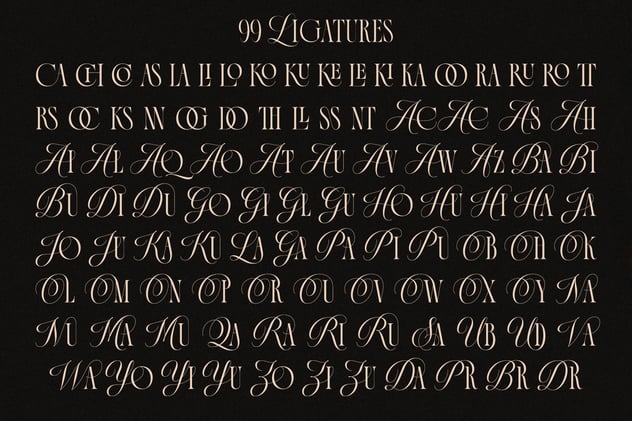 99 LIGATURES
CA CH CO AS LA LI LO KO KU KE LE KI KA OO RA RU RO TT
RS OC KS NN OG DO TH LL SS NT AC AS AH
AI AL AQ AO AT AU AV AW AZ BA BI
BU DI DU GO GI GL GU HO HU HI HA JA
JO JU KA KU LA GA PA PI PU OB OK
OL OM ON OP OR OU OV OW OX OY NA
NU MA MU QA RA RI RU SA UB UD VA
WA YO YI YU ZO ZI ZU DA PR BR DR